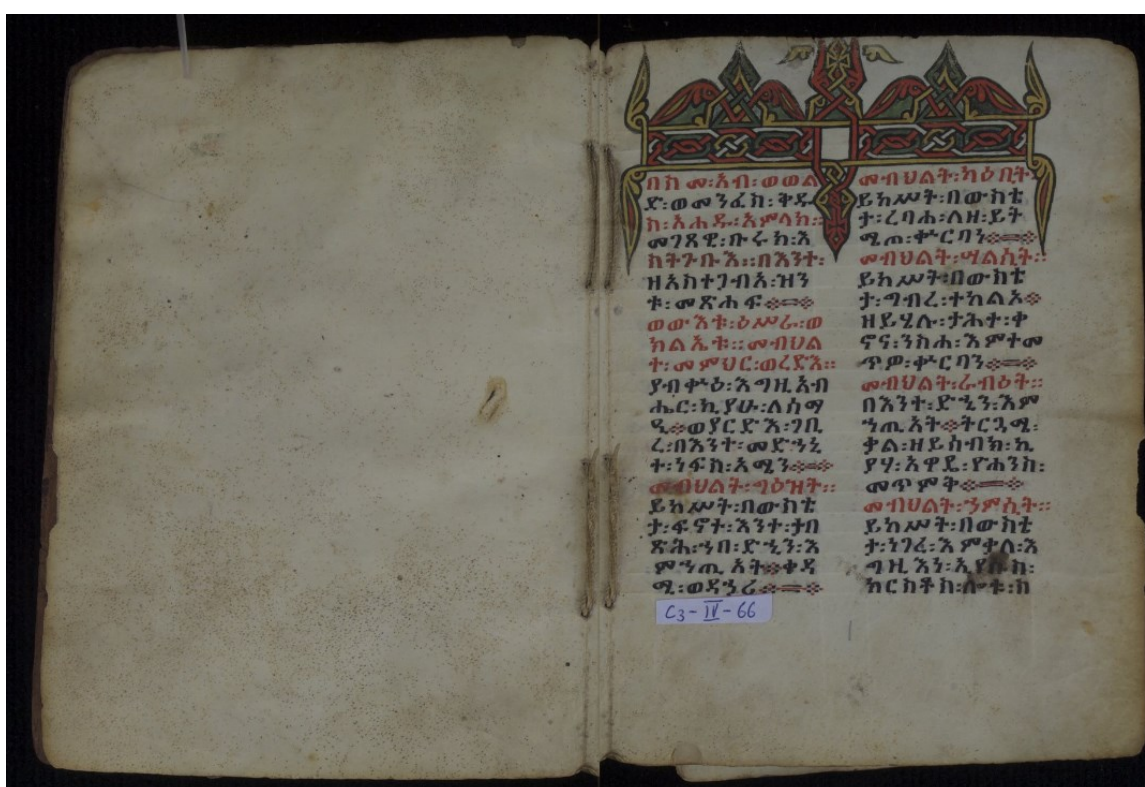 በስመ፡አብ፡ወወል
ድ፡ወመንፈስ፡ቅዱ
ስ፡አሐዱ፡አምላክ።
መገጸዊ፡ቡሩክ፡እ
ስትጉቡእ።በእንተ፡
ዘአስተጋብአ፡ዝን
ቱ፡መጽሐፍ
ወውእቱ፡ዕሥራ፡ወ
ክልኤቱ።መብህል
ት፡መምህር፡ወረድእ።
ያብቀኍዕ፡እግዚአብ
ሔር፡ኪያሁ፡ለሰማ
ዒ፡ወያርድእ፡ገቢ
ረ፡በእንተ፡መድኀኒ
ተ፡ነፍስ፡አሜን
መብህልት፡ግዕዝት።
ይከሥት፡በውስቴ
ታ፡ፍኖተ፡እንተ፡ታበ
ጽሕ፡ኀበ፡ድኂን፡እ
ምኀጢአት፡ቀዳ
ሚ፡ወዳኃሪ
መብህልት፡ካዕቢት
ይከሥት፡በውስቴ
ታ፡ረባሐ፡ለዘ፡ይት
ሜጦ፡ቍርባን
መብህልት፡ሣልሲት።
ይከሥት፡በውስቴ
ታ፡ግብረ፡ተከልኦ
ዘይሄሉ፡ታሕተ፡ቀ
ኖና፡ንስሐ፡እምተመ
ጥዎ፡ቍርባን
መብህልት፡ራብዕት።
በእንተ፡ድኂን፡እም
ኀጢአት፡ትርጓሜ፡
ቃል፡ዘይሰብክ፡ኪ
ያሃ፡አዋዴ፡ዮሐንስ፡
መጥምቅ
መብህልት፡ኃምሲት።
ይከሥት፡በውስቴ
ታ፡ነገረ፡እምቃለ፡እ
ግዚእነ፡ኢየሱስ፡
ክርስቶስ፡ሎቱ፡ስ
C3-IV-66